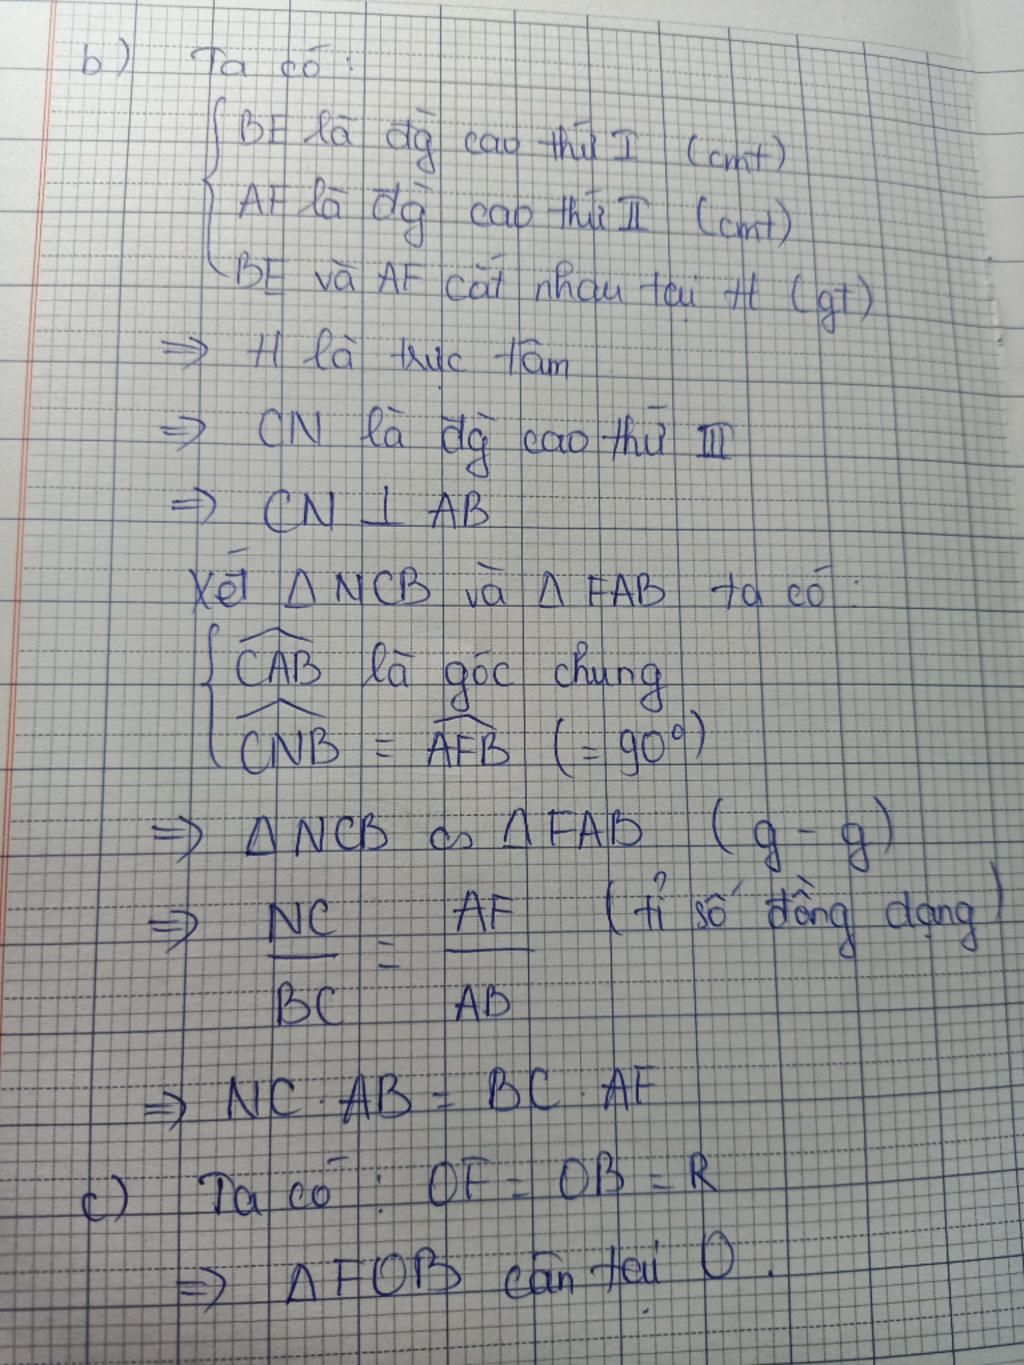 b) Ta có :
BE là đg̀ cao thứ I (cmt)
AF là đg̀ cao thứ II (cmt)
BE và AF cắt nhau tại H (gt)
⇒ H là trực tâm
⇒ CN là đg̀ cao thứ III
⇒ CN ⊥ AB
Xét Δ NCB và Δ FAB ta có :
CAB là góc chung
CNB = AFB (= 90°)
⇒ Δ NCB ∽ Δ FAB ( g - g )
⇒ NC/BC = AF/AB ( tỉ số đồng dạng )
⇒ NC . AB = BC . AF
c) Ta có : OF = OB = R
⇒ Δ FOB cân tại O .